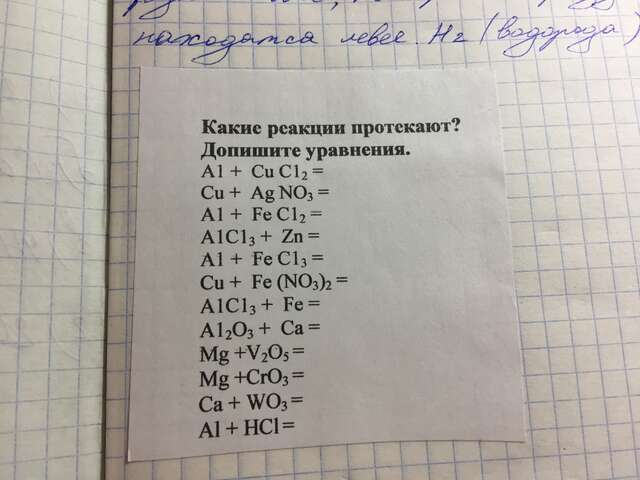 находятся левее H₂ (водорода)
Какие реакции протекают?
Допишите уравнения.
Al + Cu Cl₂ =
Cu + Ag NO₃ =
Al + Fe Cl₂ =
AlCl₃ + Zn =
Al + Fe Cl₃ =
Cu + Fe (NO₃)₂ =
AlCl₃ + Fe =
Al₂O₃ + Ca =
Mg +V₂O₅ =
Mg +CrO₃ =
Ca + WO₃ =
Al + HCl =